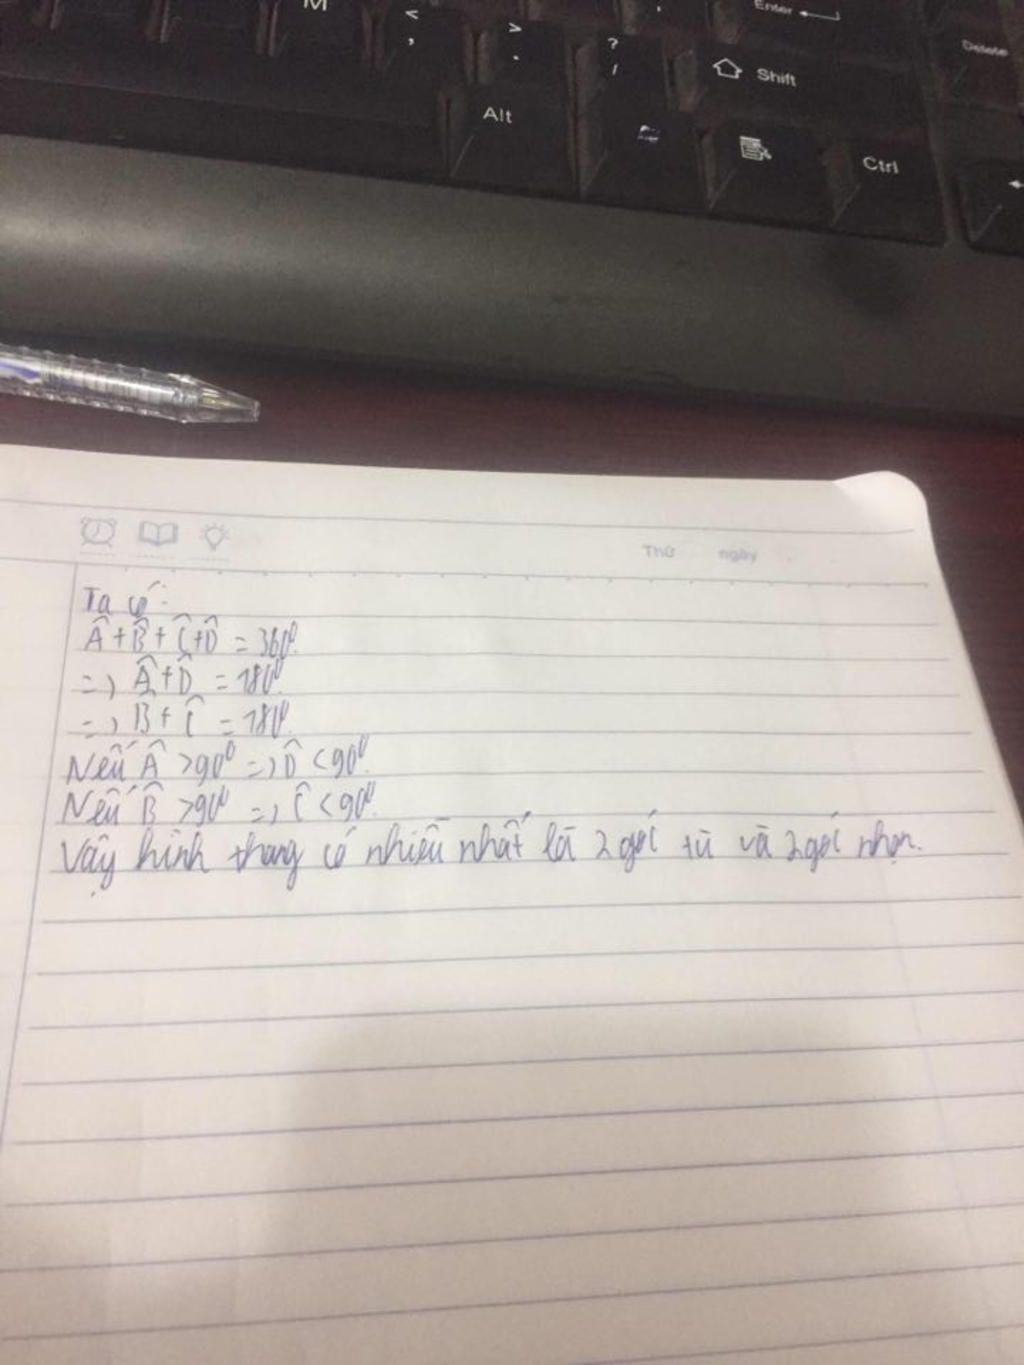 M
<
,
>
.
?
/
Enter
Shift
Delete
Alt
Ctrl
Thứ ngày
Ta có:
Â+B̂+Ĉ+D̂ = 360⁰.
=> Â+D̂ = 180⁰.
=> B̂+Ĉ = 180⁰.
Nếu Â >90⁰ => D̂ <90⁰.
Nếu B̂ >90⁰ => Ĉ <90⁰.
Vậy hình thang có nhiều nhất là 2 góc tù và 2 góc nhọn.